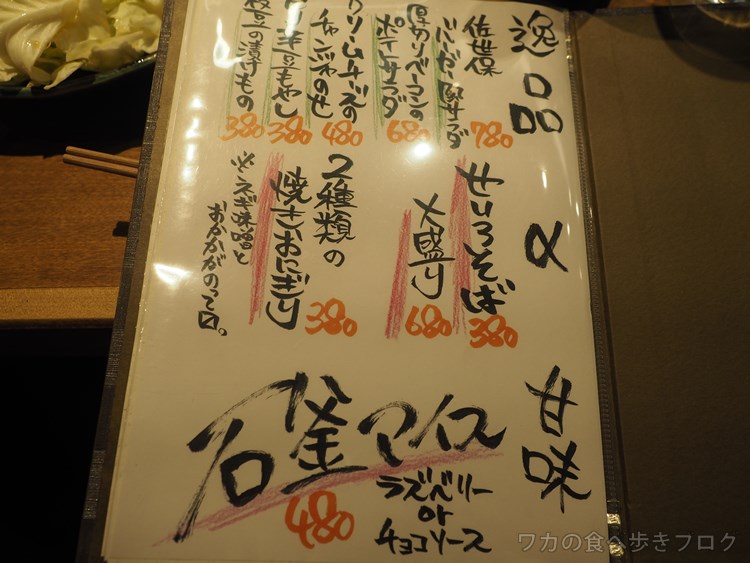 逸品
佐世保
バーガー風サラダ
780
厚切りベーコンの
ポテトサラダ
680
クリームチーズの
チャンジャのせ
480
ピリ辛豆もやし
380
枝豆の漬けもの
380
α
せいろそば
380
大盛り
680
2種類の
焼きおにぎり
380
※ネギ味噌と
おかかがのって〼。
甘味
石釜アイス
480
ラズベリー
or
チョコソース
ワカの食べ歩きブログ